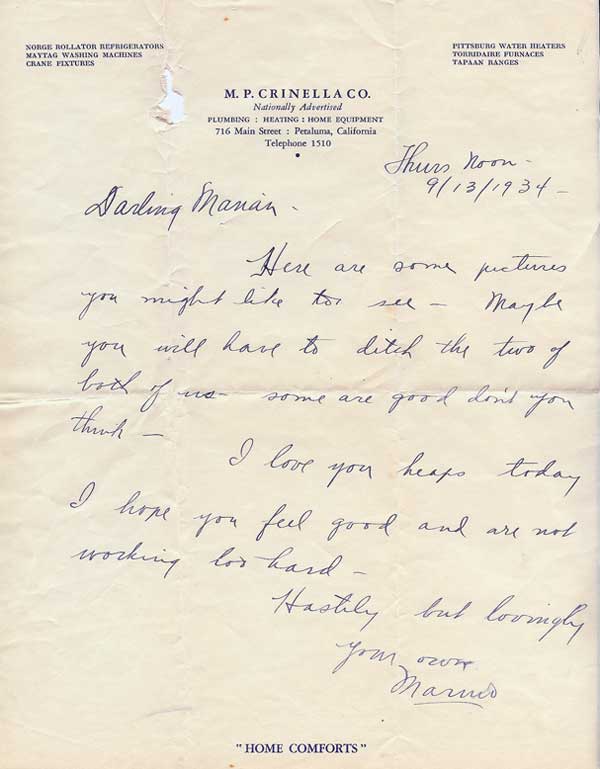 NORGE ROLLATOR REFRIGERATORS
MAYTAG WASHING MACHINES
CRANE FIXTURES
PITTSBURG WATER HEATERS
TORRIDAIRE FURNACES
TAPAAN RANGES
M. P. CRINELLA CO.
Nationally Advertised
PLUMBING : HEATING : HOME EQUIPMENT
716 Main Street : Petaluma, California
Telephone 1510
Thurs Noon -
9/13/1934 -
Darling Marian -
Here are some pictures
you might like to see - Maybe
you will have to ditch the two of
both of us - some are good don't you
think -
I love you heaps today
I hope you feel good and are not
working too hard -
Hastily but lovingly
your own
"HOME COMFORTS"